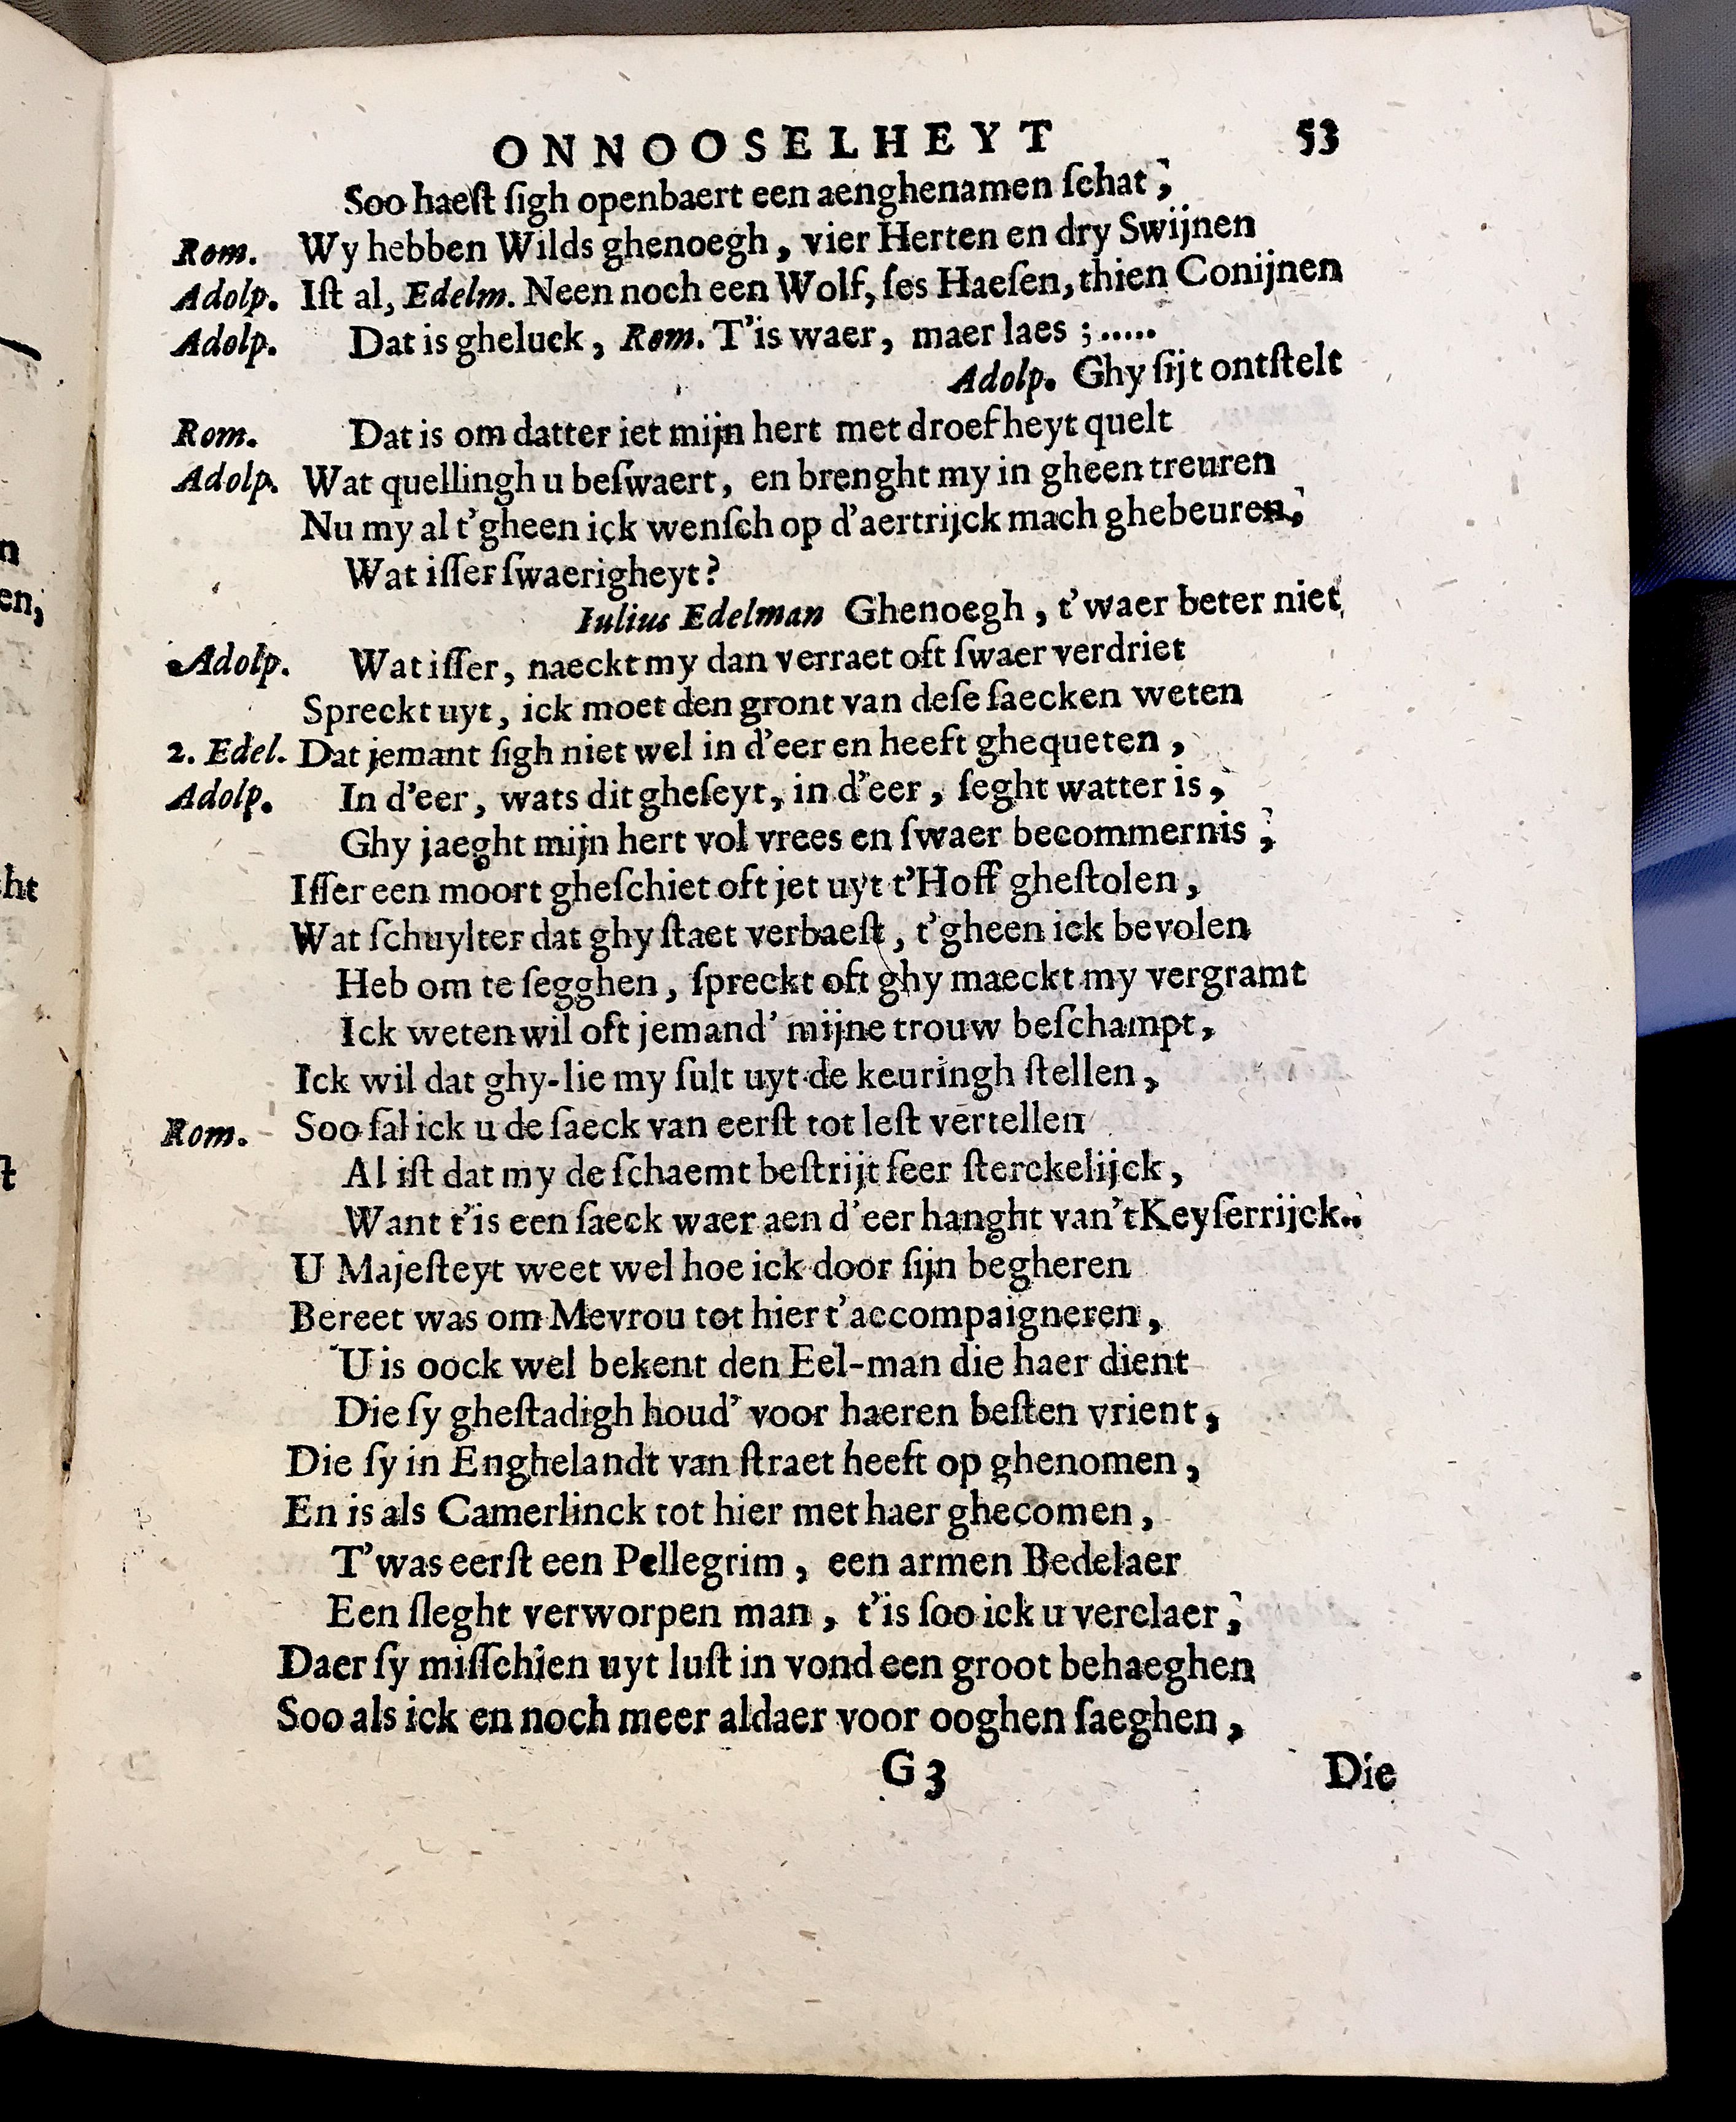 ONNOOSELHEYT 53
Soo haeſt ſigh openbaert een aenghenamen ſchat;
Rom. Wy hebben Wilds ghenoegh, vier Herten en dry Swijnen
Adolp. Iſt al, Edelm. Neen noch een Wolf, ſes Haeſen, thien Conijnen
Adolp. Dat is gheluck, Rom. T'is waer, maer laes ;.....
Adolp. Ghy ſijt ontſtelt
Rom. Dat is om datter iet mijn hert met droefheyt quelt
Adolp. Wat quellingh u beſwaert, en brenght my in gheen treuren
Nu my al t'gheen ick wenſch op d'aertrijck mach ghebeuren;
Wat iſſer ſwaerigheyt?
Iulius Edelman Ghenoegh, t'waer beter niet
Adolp. Wat iſſer, naeckt my dan verraet oft ſwaer verdriet
Spreckt uyt, ick moet den gront van deſe ſaecken weten
2. Edel. Dat jemant ſigh niet wel in d'eer en heeft ghequeten,
Adolp. In d'eer, wats dit gheſeyt, in d'eer, ſeght watter is,
Ghy jaeght mijn hert vol vrees en ſwaer becommernis;
Iſſer een moort gheſchiet oft jet uyt t'Hoff gheſtolen,
Wat ſchuylter dat ghy ſtaet verbaeſt, t'gheen ick bevolen
Heb om te ſegghen, ſpreckt oft ghy maeckt my vergramt
Ick weten wil oft jemand' mijne trouw beſchampt,
Ick wil dat ghy-lie my ſult uyt de keuringh ſtellen,
Rom. Soo ſal ick u de ſaeck van eerſt tot leſt vertellen
Al iſt dat my de ſchaemt beſtrijt ſeer ſterckelijck,
Want t'is een ſaeck waer aen d'eer hanght van't Keyſerrijck..
U Majeſteyt weet wel hoe ick door ſijn begheren
Bereet was om Mevrou tot hier t'accompaigneren,
U is oock wel bekent den Eel-man die haer dient
Die ſy gheſtadigh houd' voor haeren beſten vrient,
Die ſy in Enghelandt van ſtraet heeft op ghenomen,
En is als Camerlinck tot hier met haer ghecomen,
T'was eerſt een Pellegrim, een armen Bedelaer
Een ſleght verworpen man, t'is ſoo ick u verclaer;
Daer ſy miſſchien uyt luſt in vond een groot behaeghen
Soo als ick en noch meer aldaer voor ooghen ſaeghen,
G 3 Die